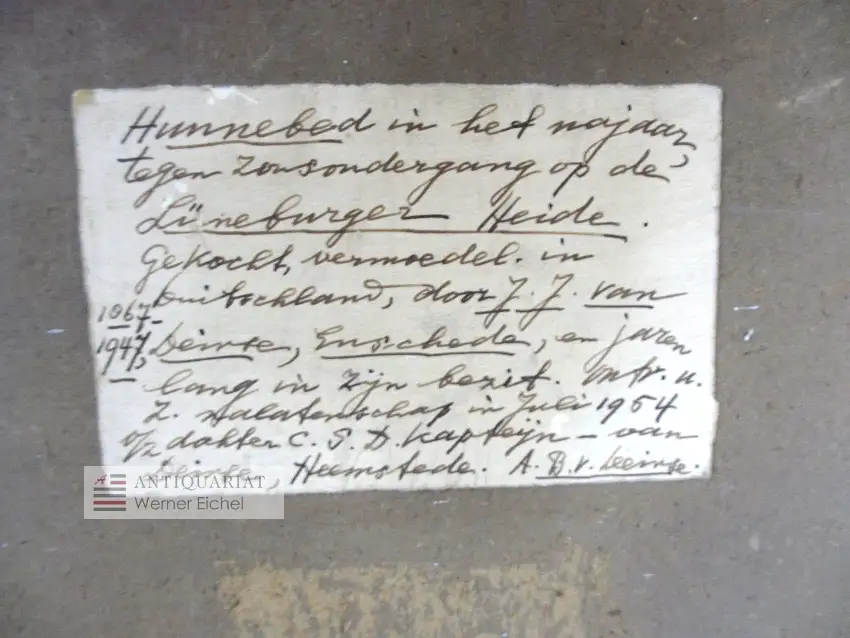 Hunnebed in het najaar,
tegen zonsondergang op de
Lüneburger Heide.
Gekocht, vermoedel. in
Duitschland, door J. J. van
1867-
1947, Deinse, Enschede, en jaren
lang in zijn bezit. Ontv. u.
z. nalatenschap in Juli 1954
v/z dokter C. S. D. Kapteijn - van
Deinse, Heemstede. A. B. v. Deinse.
ANTIQUARIAT
Werner Eichel